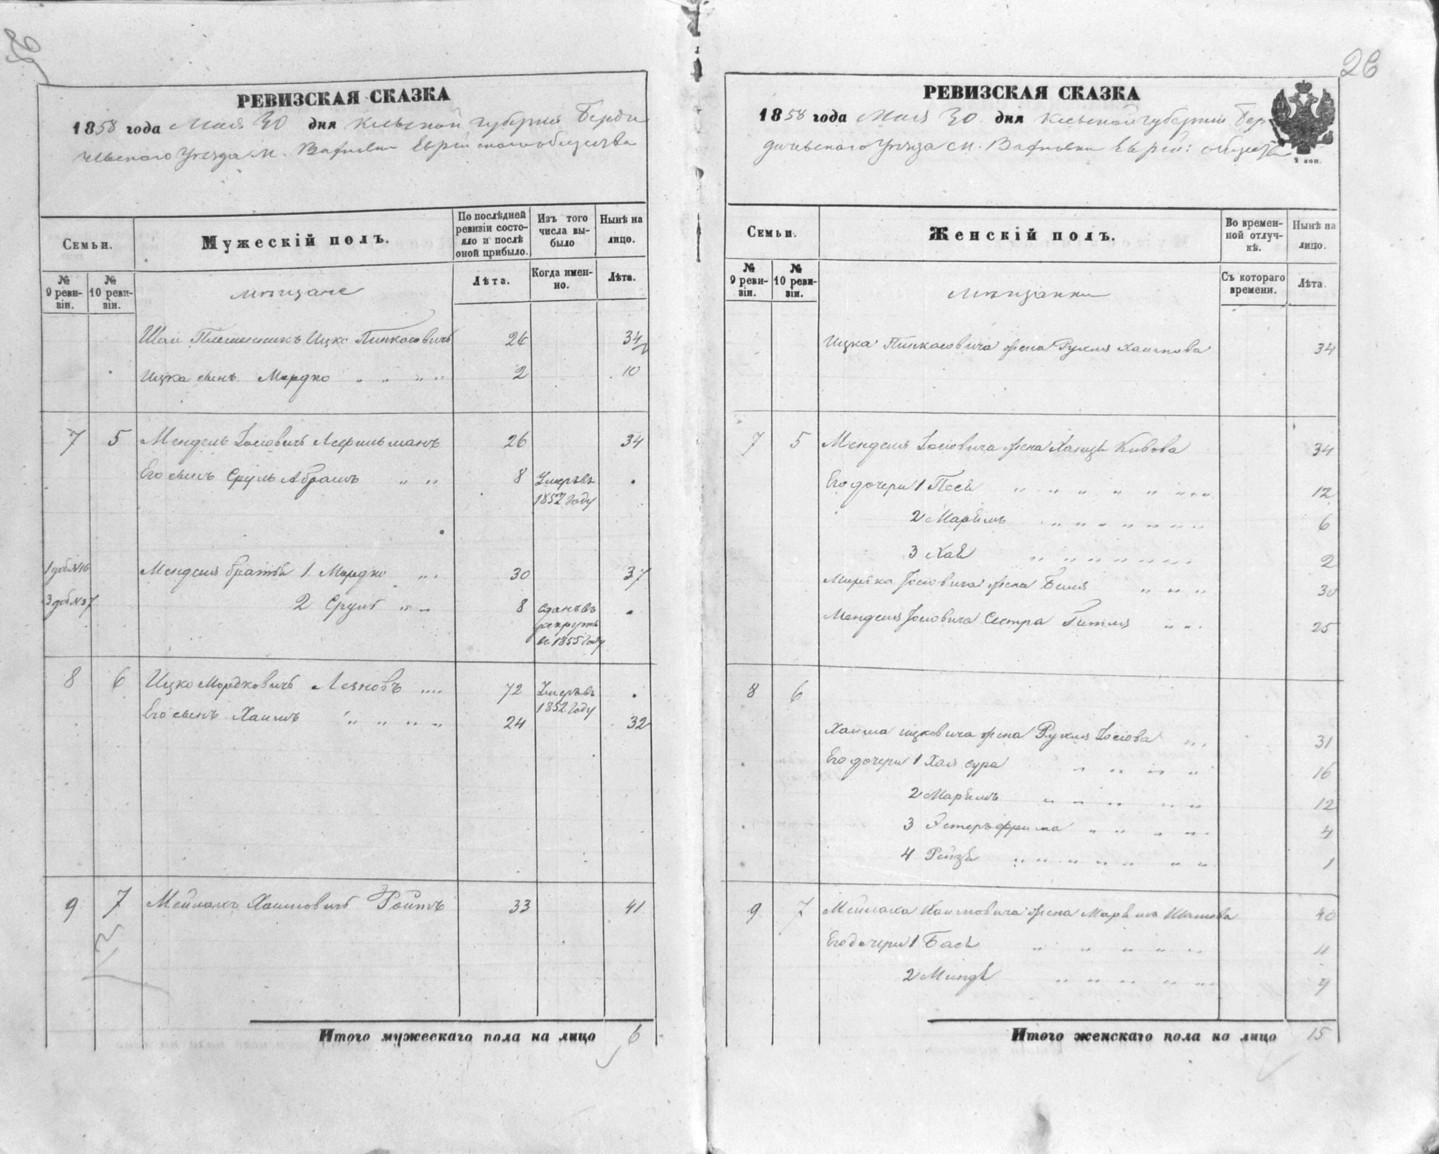 26
РЕВИЗСКАЯ СКАЗКА
1858 года Мая 30 дня Кіевской губерніи Берди
чевскаго Уѣзда м. Вахновки Еврейскаго общества
Семьи.
Мужескій полъ.
По послѣдней ревизіи состояло и послѣ оной прибыло.
Изъ того числа выбыло
Нынѣ на лицо.
№ 9 ревизіи.
№ 10 ревизіи.
мѣщане
Лѣта.
Когда именно.
Лѣта.
Ицко Пинкасовичъ 26 34
Ицка сынъ Мордко „ „ „ „ 2 10
7 5 Мендель Іосіовичъ 26 34
Его сынъ Сруль Абрамъ „ „ 8 Умеръ въ 1852 году
Менделя братья 1. Мордко „ „ 30 37
2 Сруль „ „ 8 Сданъ въ рекруты въ 1855 году
8 6 Ицко Мордковичъ „ „ 72 Умеръ въ 1852 году
Его сынъ Хаимъ „ „ „ „ „ 24 32
9 7 Мейлахъ Хаимовичъ Ройтъ 33 41
Итого мужескаго пола на лицо 6
РЕВИЗСКАЯ СКАЗКА
1858 года Мая 30 дня Кіевской губерніи Бер
дичевскаго Уѣзда м. Вахновки Еврей:
2 коп.
Семьи.
Женскій полъ.
Во временной отлучкѣ.
Нынѣ на лицо.
№ 9 ревизіи.
№ 10 ревизіи.
мѣщанки
Съ котораго времени.
Лѣта.
Ицка Пинкасовича жена Рухля Хаимова 34
7 5 Менделя Іосіовича жена 34
Его дочери 1 Песя „ „ „ „ „ „ „ 12
2 Маріемъ „ „ „ „ „ „ „ 6
3 Хая „ „ „ „ „ „ „ 2
Мордка Іосіовича жена Бейля „ „ „ 30
Менделя Іосіовича Сестра Гитля „ „ 25
8 6
Хаима Ицковича жена Рухля Іосіова „ „ 31
Его дочери 1 Хая Сура „ „ „ „ „ 16
2 Маріемъ „ „ „ „ „ „ 12
3 Эстеръ Фрима „ „ „ „ „ 4
4 Рейзя „ „ „ „ „ „ „ 1
9 7 Мейлаха Хаимовича жена Маріемъ 40
Его дочери 1 Бася „ „ „ „ „ „ 11
2 Миндя „ „ „ „ „ „ 9
Итого женскаго пола на лицо 15